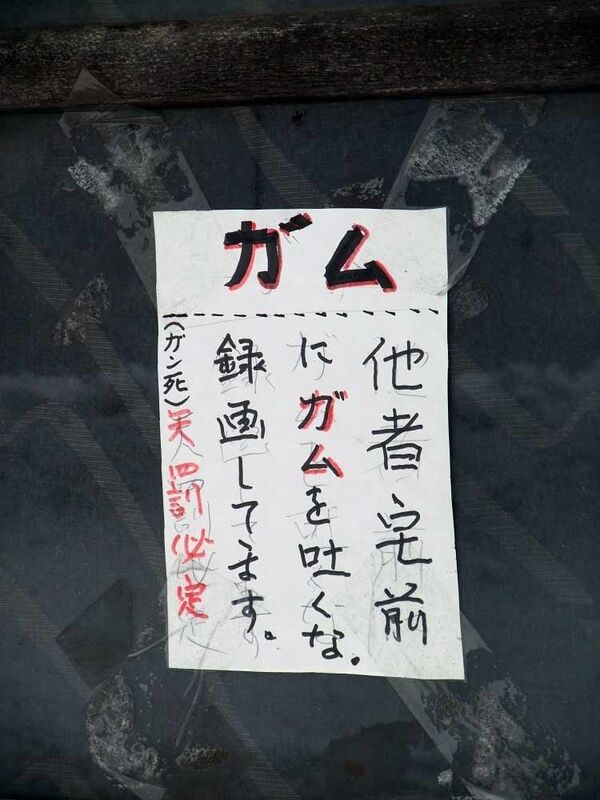 ガム
他者宅前
にガムを吐くな.
録画してます。
(ガン死)天罰必定